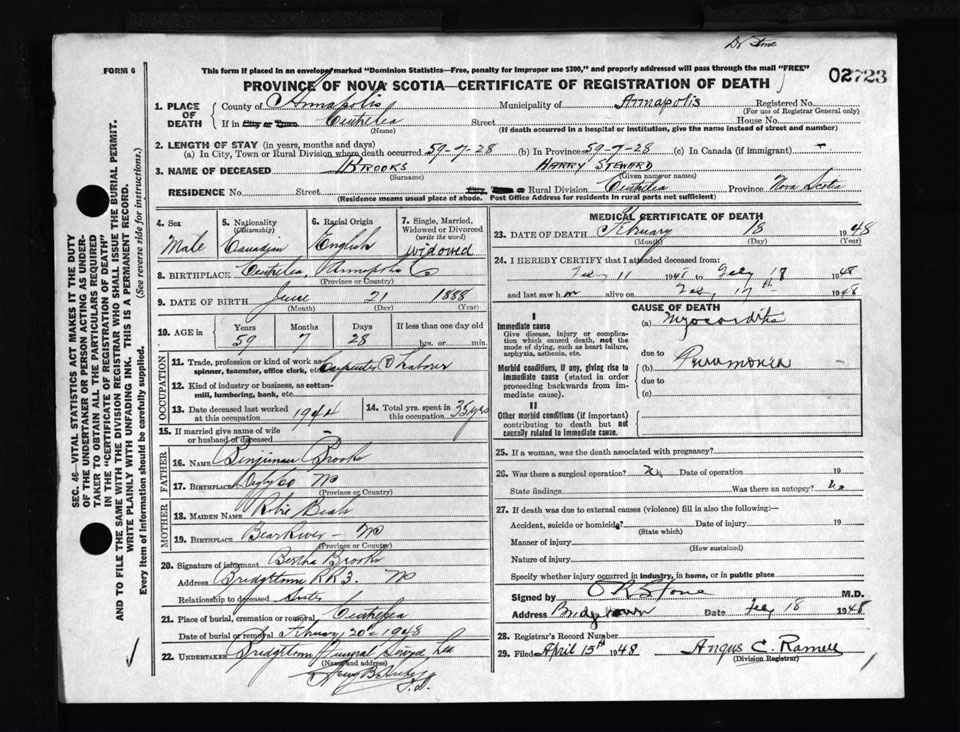 Dr Stone
FORM 6
This form if placed in an envelope marked "Dominion Statistics—Free, penalty for improper use $300," and properly addressed will pass through the mail "FREE"
02723
PROVINCE OF NOVA SCOTIA—CERTIFICATE OF REGISTRATION OF DEATH
1. PLACE OF DEATH County of Annapolis Municipality of Annapolis Registered No.
(For use of Registrar General only)
If in City or Town Centrelea Street House No.
(Name) (If death occurred in a hospital or institution, give the name instead of street and number)
2. LENGTH OF STAY (in years, months and days)
(a) In City, Town or Rural Division where death occurred 59-7-28 (b) In Province 59-7-28 (c) In Canada (if immigrant) —
3. NAME OF DECEASED BROOKS HARRY STEWARD
(Surname) (Given name or names)
RESIDENCE No. Street City Town or Rural Division Centrelea Province Nova Scotia
(Residence means usual place of abode. Post Office Address for residents in rural parts not sufficient)
4. Sex Male
5. Nationality (Citizenship) Canadian
6. Racial Origin English
7. Single, Married, Widowed or Divorced (write the word) Widowed
8. BIRTHPLACE Centrelea, Annapolis Co
(Province or Country)
9. DATE OF BIRTH June 21 1888
(Month) (Day) (Year)
10. AGE in Years Months Days If less than one day old
59 7 28 hrs. or min.
OCCUPATION
11. Trade, profession or kind of work as spinner, teamster, office clerk, etc. Carpenter & Laborer
12. Kind of industry or business, as cotton-mill, lumbering, bank, etc.
13. Date deceased last worked at this occupation 1944
14. Total yrs. spent in this occupation 35 yrs
15. If married give name of wife or husband of deceased —
FATHER
16. NAME Brooks
17. BIRTHPLACE Digby Co NS
(Province or Country)
MOTHER
18. MAIDEN NAME
19. BIRTHPLACE Bear River - NS
(Province or Country)
20. Signature of informant Bertha Brooks
Address Bridgetown RR3. NS
Relationship to deceased Sister
21. Place of burial, cremation or removal Centrelea
Date of burial or removal February 20 - 1948
22. UNDERTAKER Bridgetown Funeral Service Ltd
(Name and address)
MEDICAL CERTIFICATE OF DEATH
23. DATE OF DEATH February 18 1948
(Month) (Day) (Year)
24. I HEREBY CERTIFY that I attended deceased from:
Feb 11 1948 to Feby 18 1948
and last saw him alive on Feb, 17th 1948
CAUSE OF DEATH
I
Immediate cause
Give disease, injury or complication which caused death, not the mode of dying, such as heart failure, asphyxia, asthenia, etc.
(a) Myocarditis
due to
Morbid conditions, if any, giving rise to immediate cause (stated in order proceeding backwards from immediate cause).
(b) Pneumonia
due to
(c)
II
Other morbid conditions (if important) contributing to death but not causally related to immediate cause.
25. If a woman, was the death associated with pregnancy?
26. Was there a surgical operation? No Date of operation 19
State findings Was there an autopsy? No
27. If death was due to external causes (violence) fill in also the following:—
Accident, suicide or homicide? Date of injury 19
(State which)
Manner of injury
(How sustained)
Nature of injury
Specify whether injury occurred in industry, in home, or in public place
Signed by Stone M.D.
Address Bridgetown Date Feby 18 1948
28. Registrar's Record Number
29. Filed April 15th 1948 Angus C.
(Division Registrar)
SEC. 46—VITAL STATISTICS ACT MAKES IT THE DUTY
OF THE UNDERTAKER OR PERSON ACTING AS UNDER-
TAKER TO OBTAIN ALL THE PARTICULARS REQUIRED
IN THE "CERTIFICATE OF REGISTRATION OF DEATH"
AND TO FILE THE SAME WITH THE DIVISION REGISTRAR WHO SHALL ISSUE THE BURIAL PERMIT.
WRITE PLAINLY WITH UNFADING INK. THIS IS A PERMANENT RECORD.
Every item of information should be carefully supplied. (See reverse side for instructions.)